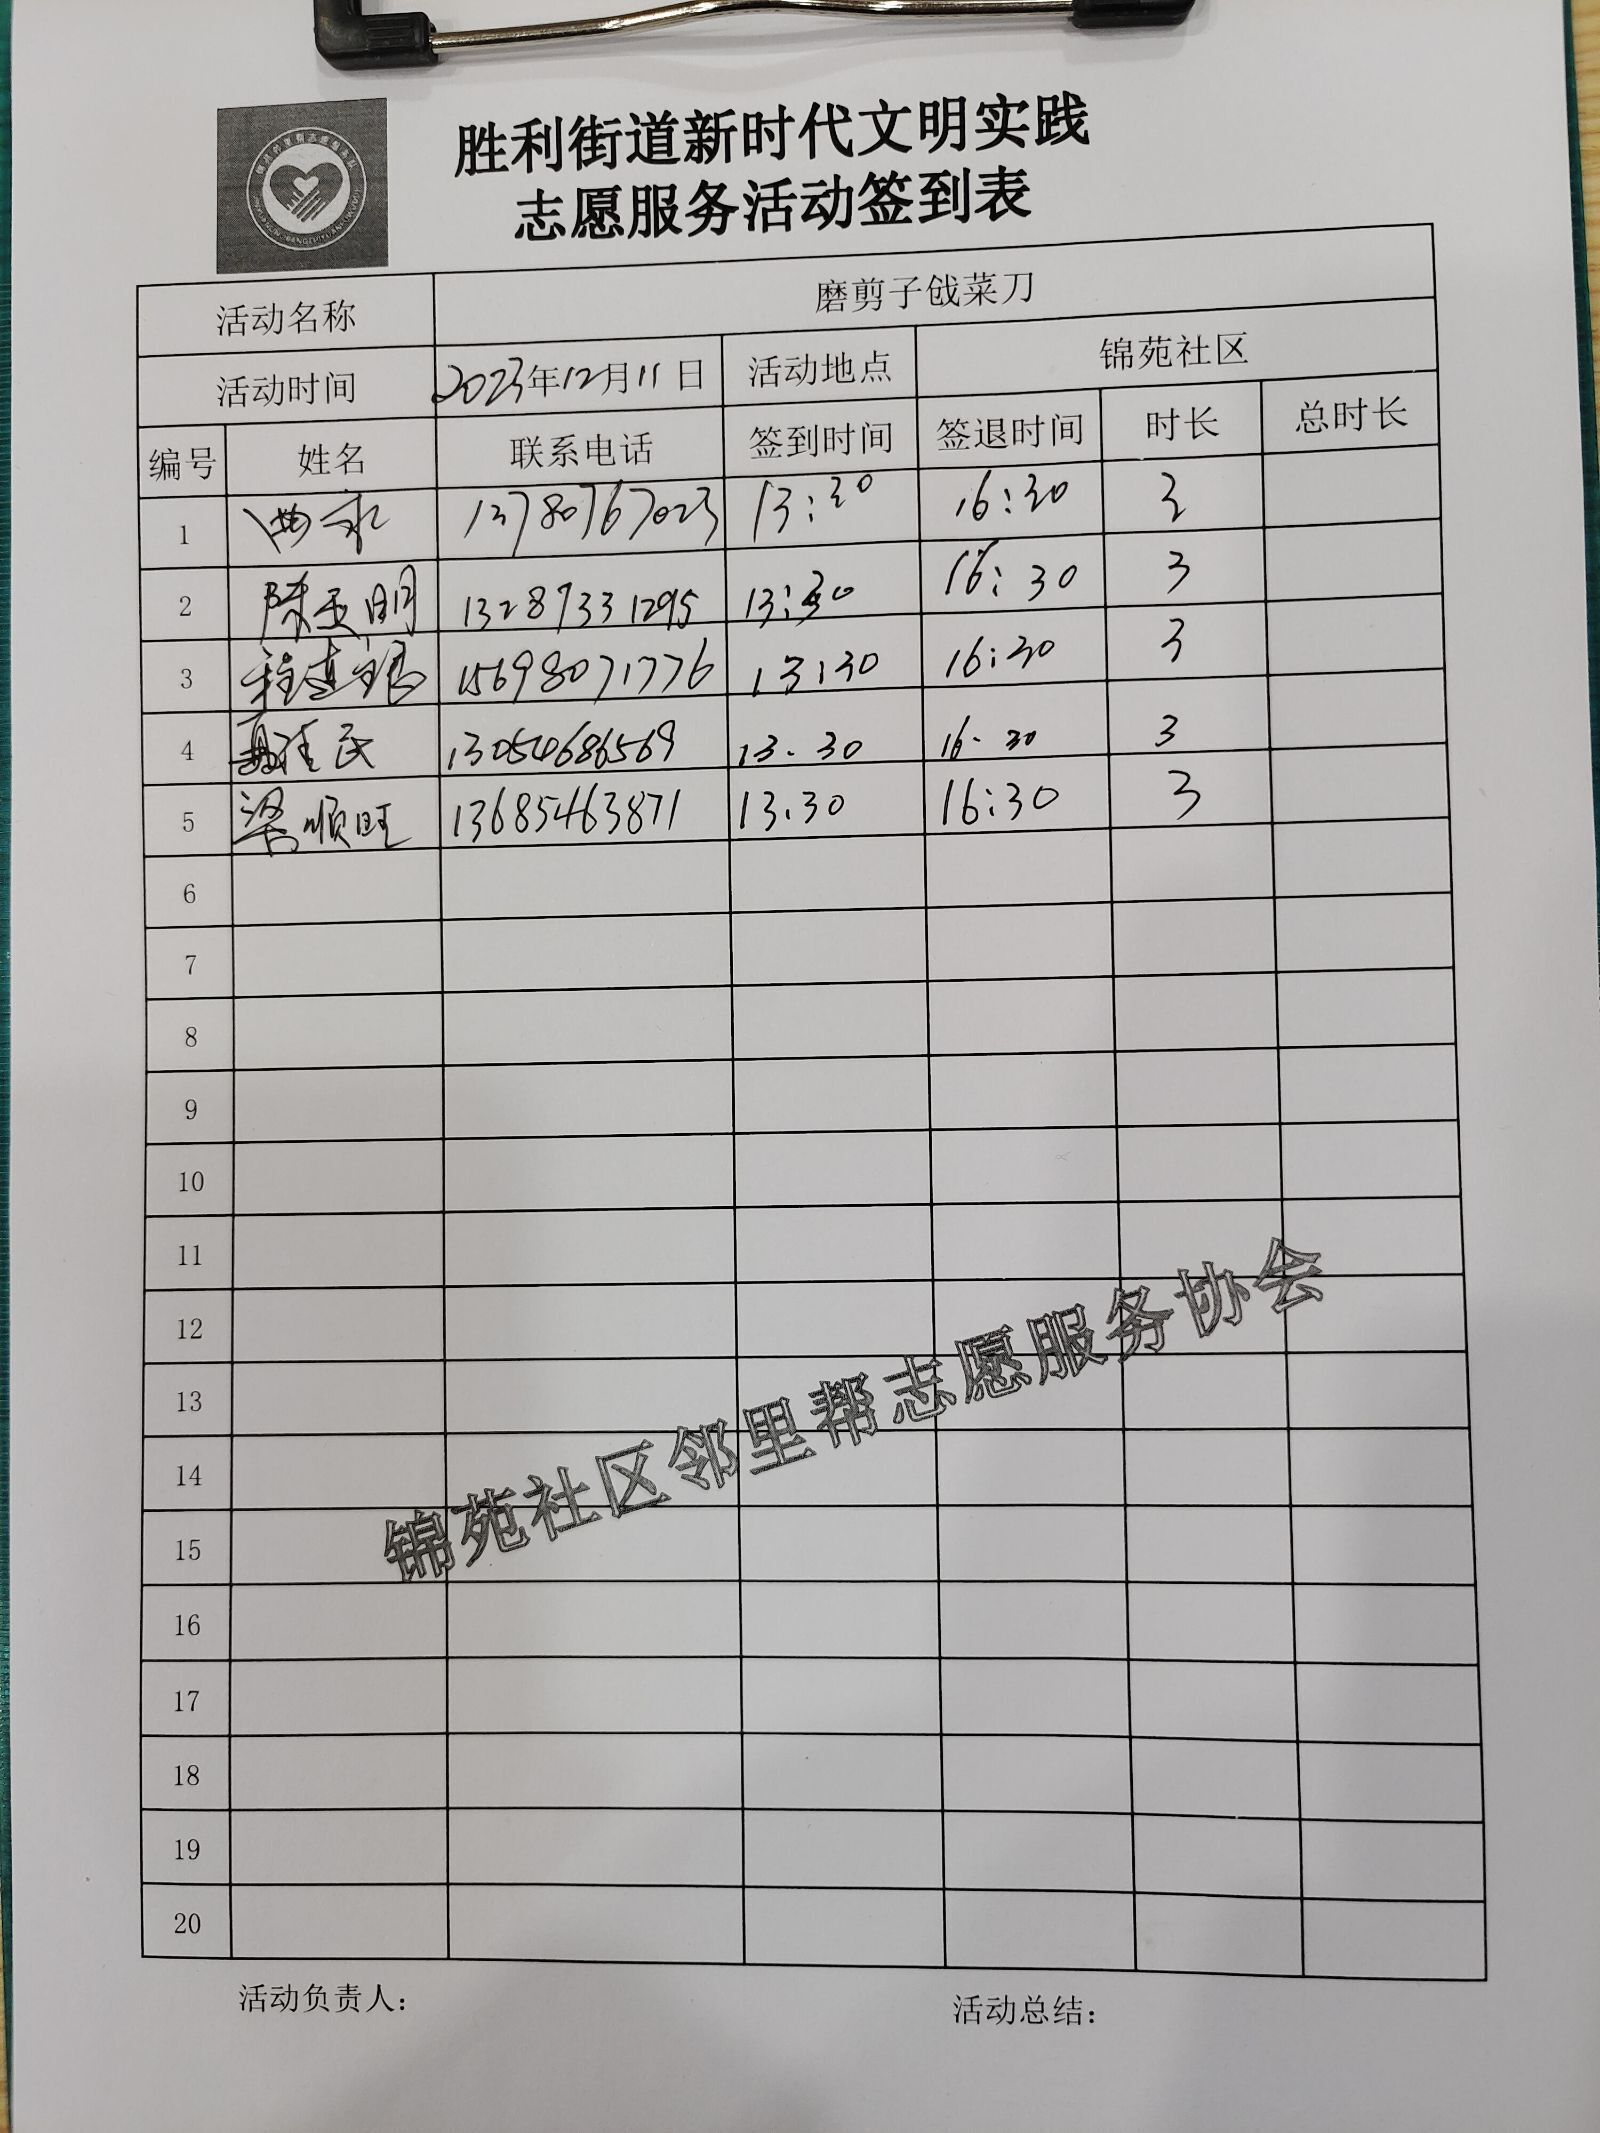 胜利街道新时代文明实践
志愿服务活动签到表
活动名称 磨剪子戗菜刀
活动时间 2023年12月11日 活动地点 锦苑社区
编号 姓名 联系电话 签到时间 签退时间 时长 总时长
1 13780767023 13:30 16:30 3
2 陈玉明 13287331295 13:30 16:30 3
3 15698071776 13:30 16:30 3
4 13054686569 13.30 16.30 3
5 梁顺旺 13685463871 13.30 16:30 3
6
7
8
9
10
11
12
13
14
15
16
17
18
19
20
锦苑社区邻里帮志愿服务协会
活动负责人： 活动总结：